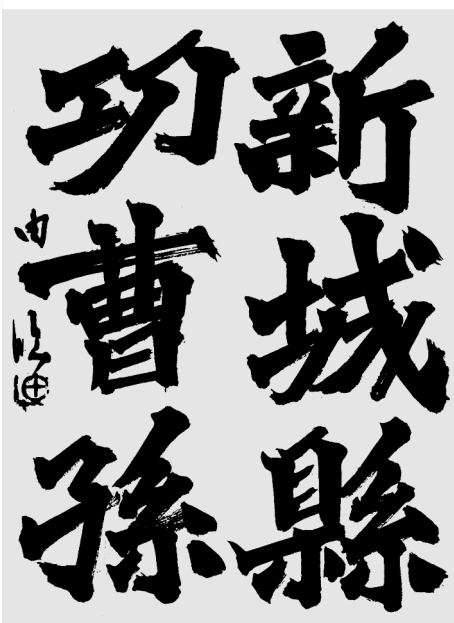 新城縣
功曹孫